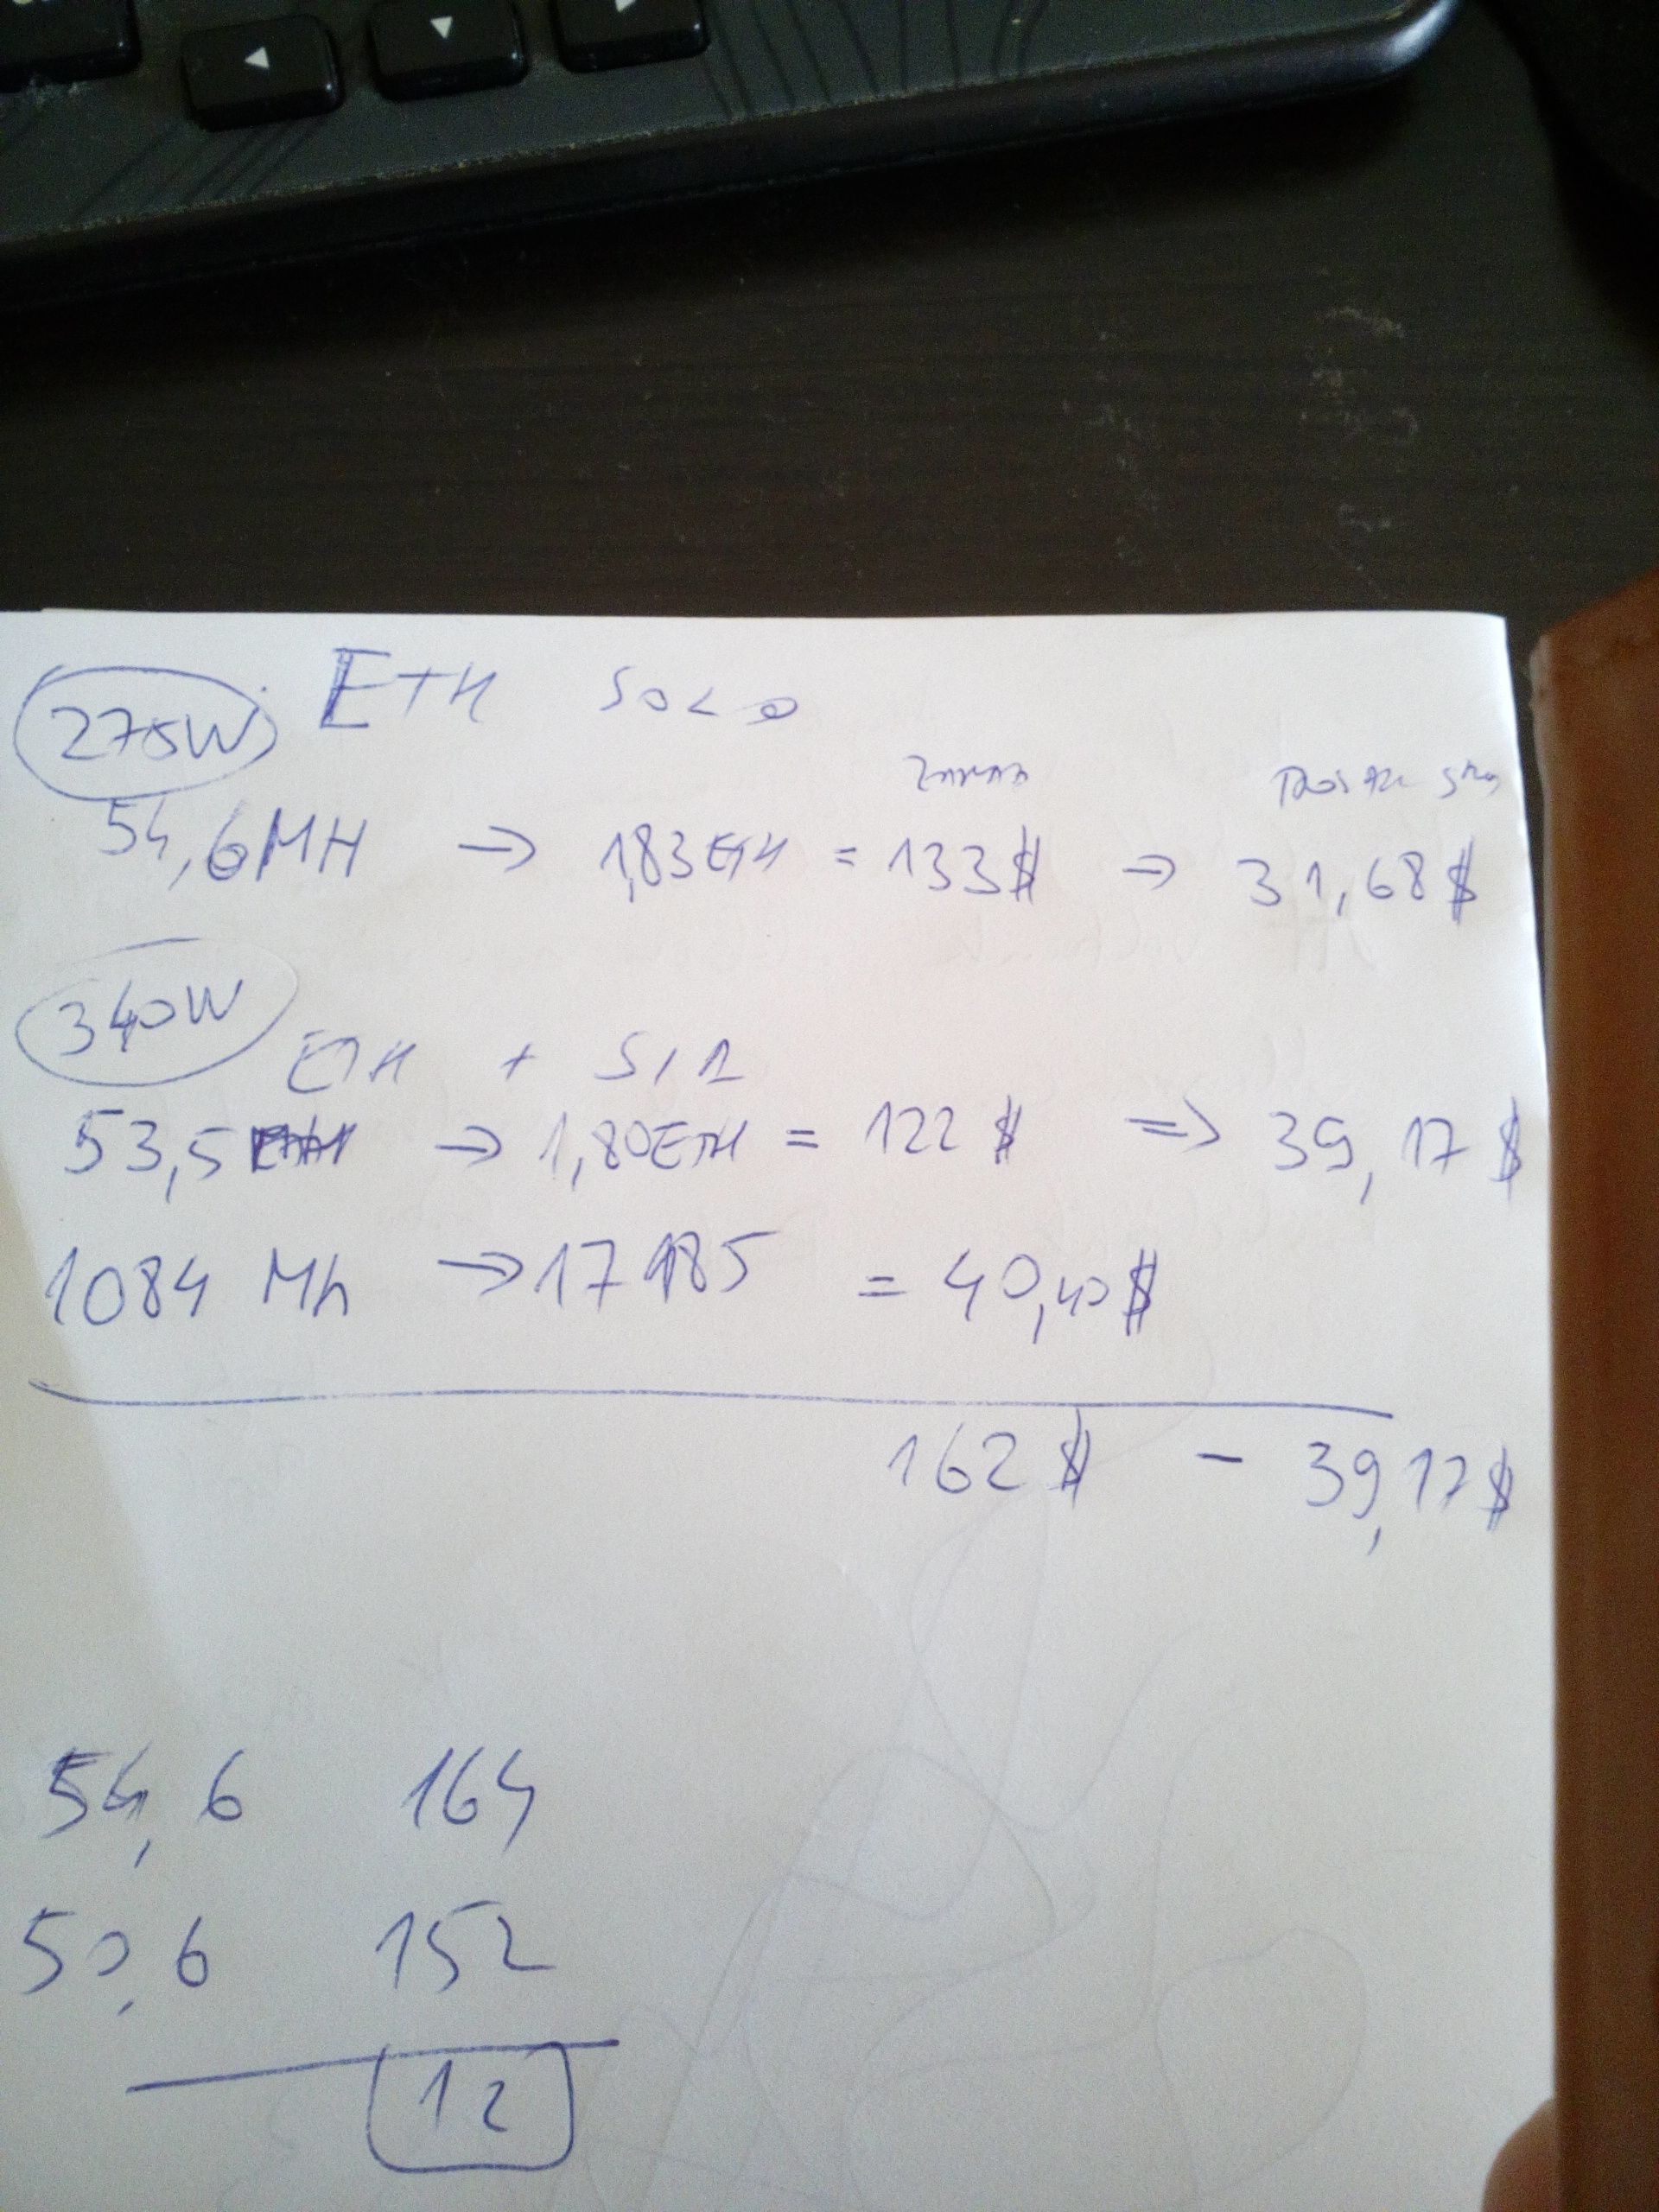 275W ETH SOLO
54,6MH → 1,83ETH = 133$ → 31,68$
340W
ETH + SIA
53,5 → 1,80ETH = 122$ => 39,17$
1084 Mh → 17185 = 40,40$
162$ - 39,17$
54,6 164
50,6 152
12